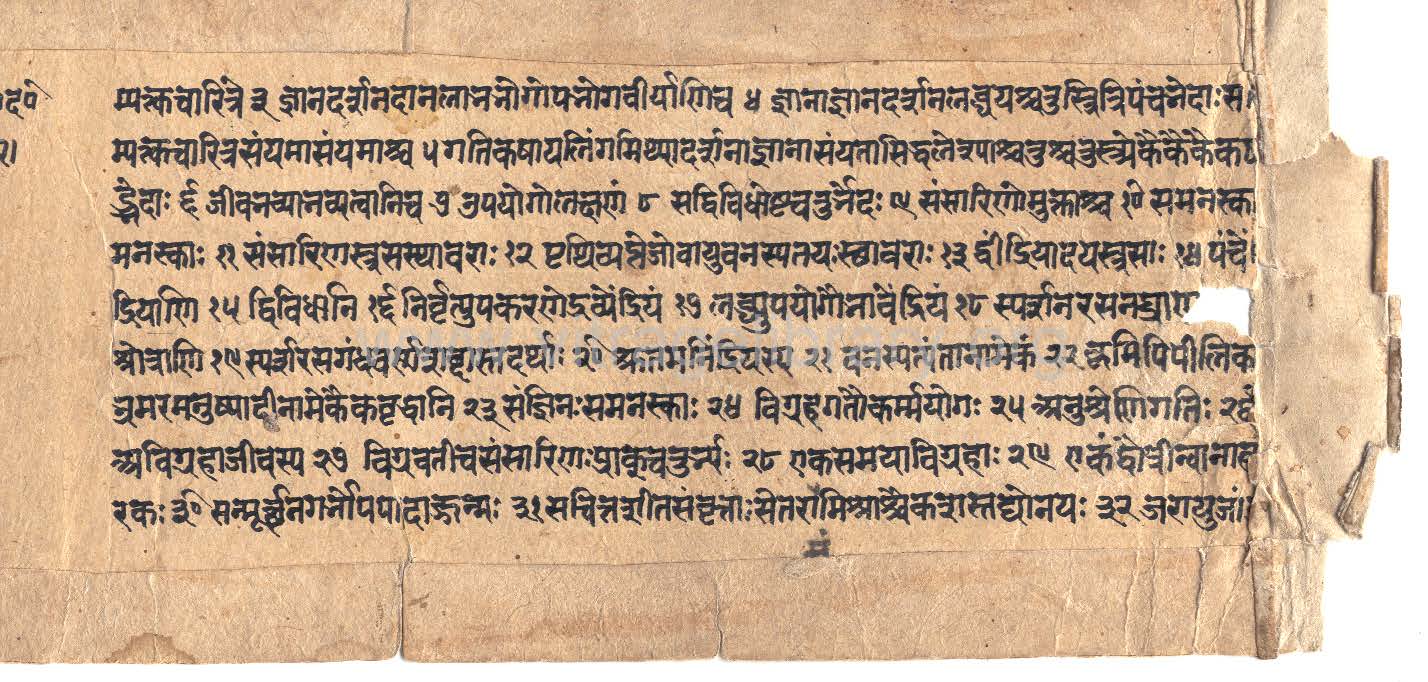 म्यक्त्वचारित्रे ३ ज्ञानदर्शनदानलाभभोगोपभोगवीर्याणि च ४ ज्ञानाज्ञानदर्शनलब्धयश्चतुस्त्रित्रिपंचभेदाः स
म्यक्त्वचारित्रसंयमासंयमाश्च ५ गतिकषायलिंगमिथ्यादर्शनाज्ञानासंयतासिद्धलेश्याश्चतुश्चतुस्त्र्येकैकैकैकष
ड्भेदाः ६ जीवभव्याभव्यत्वानि च ७ उपयोगो लक्षणं ८ स द्विविधोष्टचतुर्भेदः ९ संसारिणो मुक्ताश्च १० समनस्का
मनस्काः ११ संसारिणस्त्रसस्थावराः १२ पृथिव्यप्तेजोवायुवनस्पतयः स्थावराः १३ द्वींद्रियादयस्त्रसाः १४ पंचें
द्रियाणि १५ द्विविधानि १६ निर्वृत्युपकरणे द्रव्येंद्रियं १७ लब्ध्युपयोगौ भावेंद्रियं १८ स्पर्शनरसनघ्राण
श्रोत्राणि १९ स्पर्शरसगंधवर्णशब्दास्तदर्थाः २० श्रुतमनिंद्रियस्य २१ वनस्पत्यंतानामेकं २२ कृमिपिपीलिका
भ्रमरमनुष्यादीनामेकैकवृद्धानि २३ संज्ञिनः समनस्काः २४ विग्रहगतौ कर्मयोगः २५ अनुश्रेणि गतिः २६
अविग्रहा जीवस्य २७ विग्रवती च संसारिणः प्राक्चतुर्भ्यः २८ एकसमयाविग्रहाः २९ एकं द्वौ त्रीन्वानाहा
रकः ३० सन्मूर्च्छनगर्भोपपादाज्जन्मः ३१ सचित्तशीतसंवृत्ताः सेतरा मिश्राश्चैकशस्तद्योनयः ३२ जरायुजां